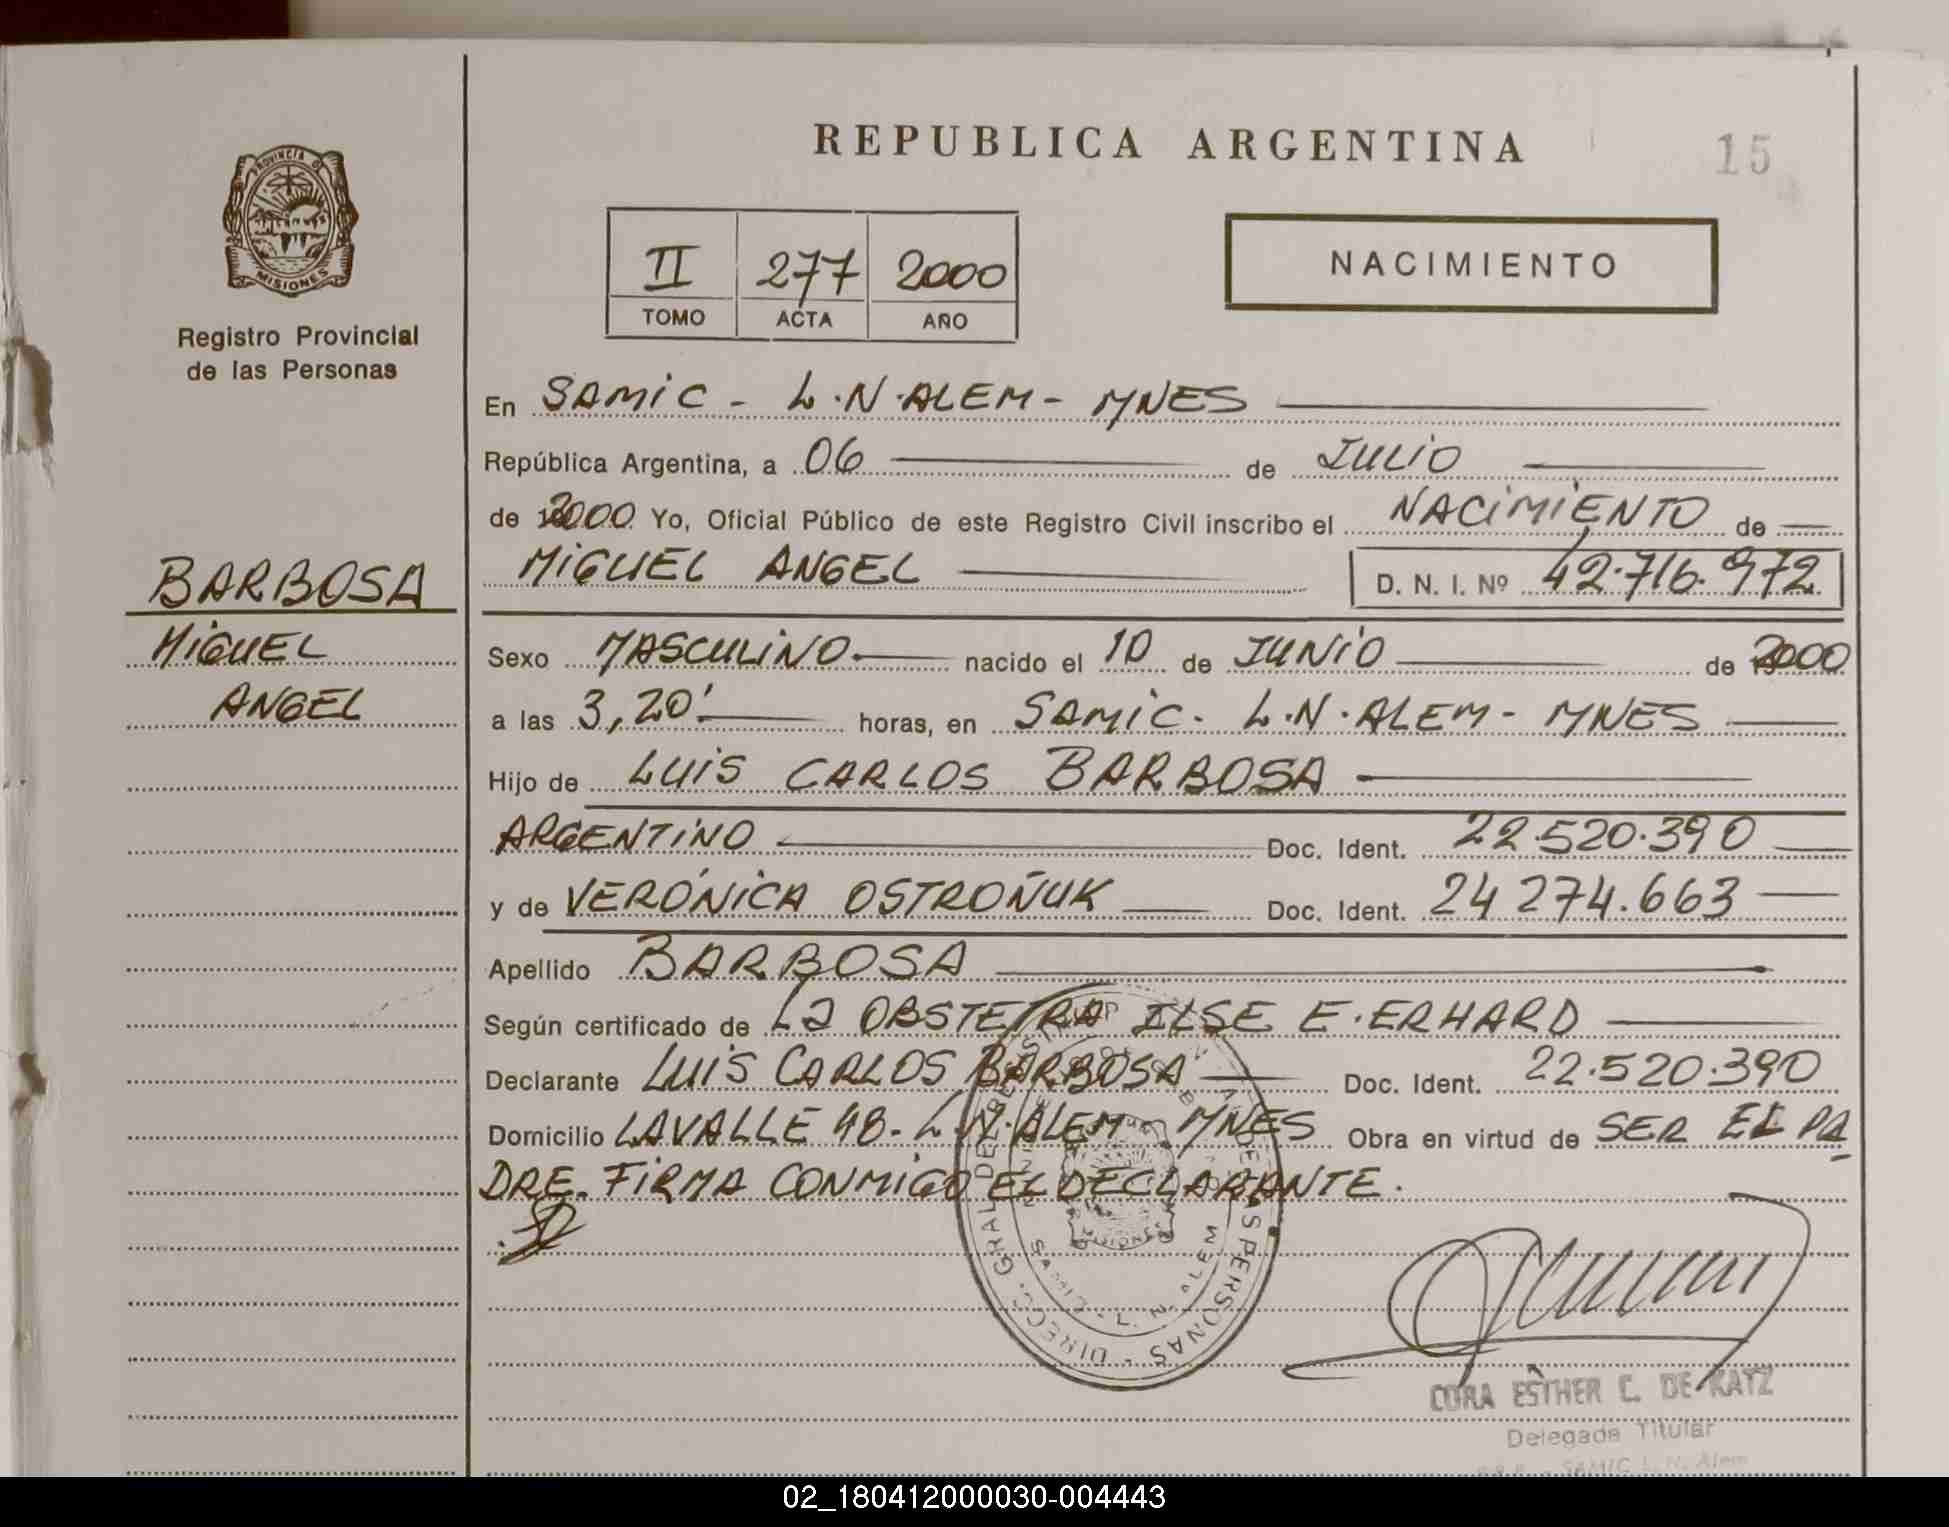 REPUBLICA ARGENTINA
15
PROVINCIA DE
MISIONES
Registro Provincial
de las Personas
II 277 2000
TOMO ACTA AÑO
NACIMIENTO
En SAMIC - L.N.ALEM - MNES
República Argentina, a 06 de JULIO
de 2000 Yo, Oficial Público de este Registro Civil inscribo el NACIMIENTO de
MIGUEL ANGEL D. N. I. Nº 42.716.972
BARBOSA
MIGUEL
ANGEL
Sexo MASCULINO nacido el 10 de JUNIO de 2000
a las 3,20' horas, en SAMIC. L.N.ALEM - MNES
Hijo de LUIS CARLOS BARBOSA
ARGENTINO Doc. Ident. 22.520.390
y de VERÓNICA OSTROÑUK Doc. Ident. 24 274.663
Apellido BARBOSA
Según certificado de La OBSTETRA ILSE E. ERHARD
Declarante LUIS CARLOS BARBOSA Doc. Ident. 22.520.390
Domicilio LAVALLE 48 - L.N.ALEM MNES Obra en virtud de SER EL PA
DRE. FIRMA CONMIGO EL DECLARANTE.
DIRECC. GRAL. DE PERSONAS
SAMIC - L. N. ALEM
MISIONES
CORA ESTHER C. DE KATZ
Delegada Titular
SAMIC L. N. Alem
02_180412000030-004443